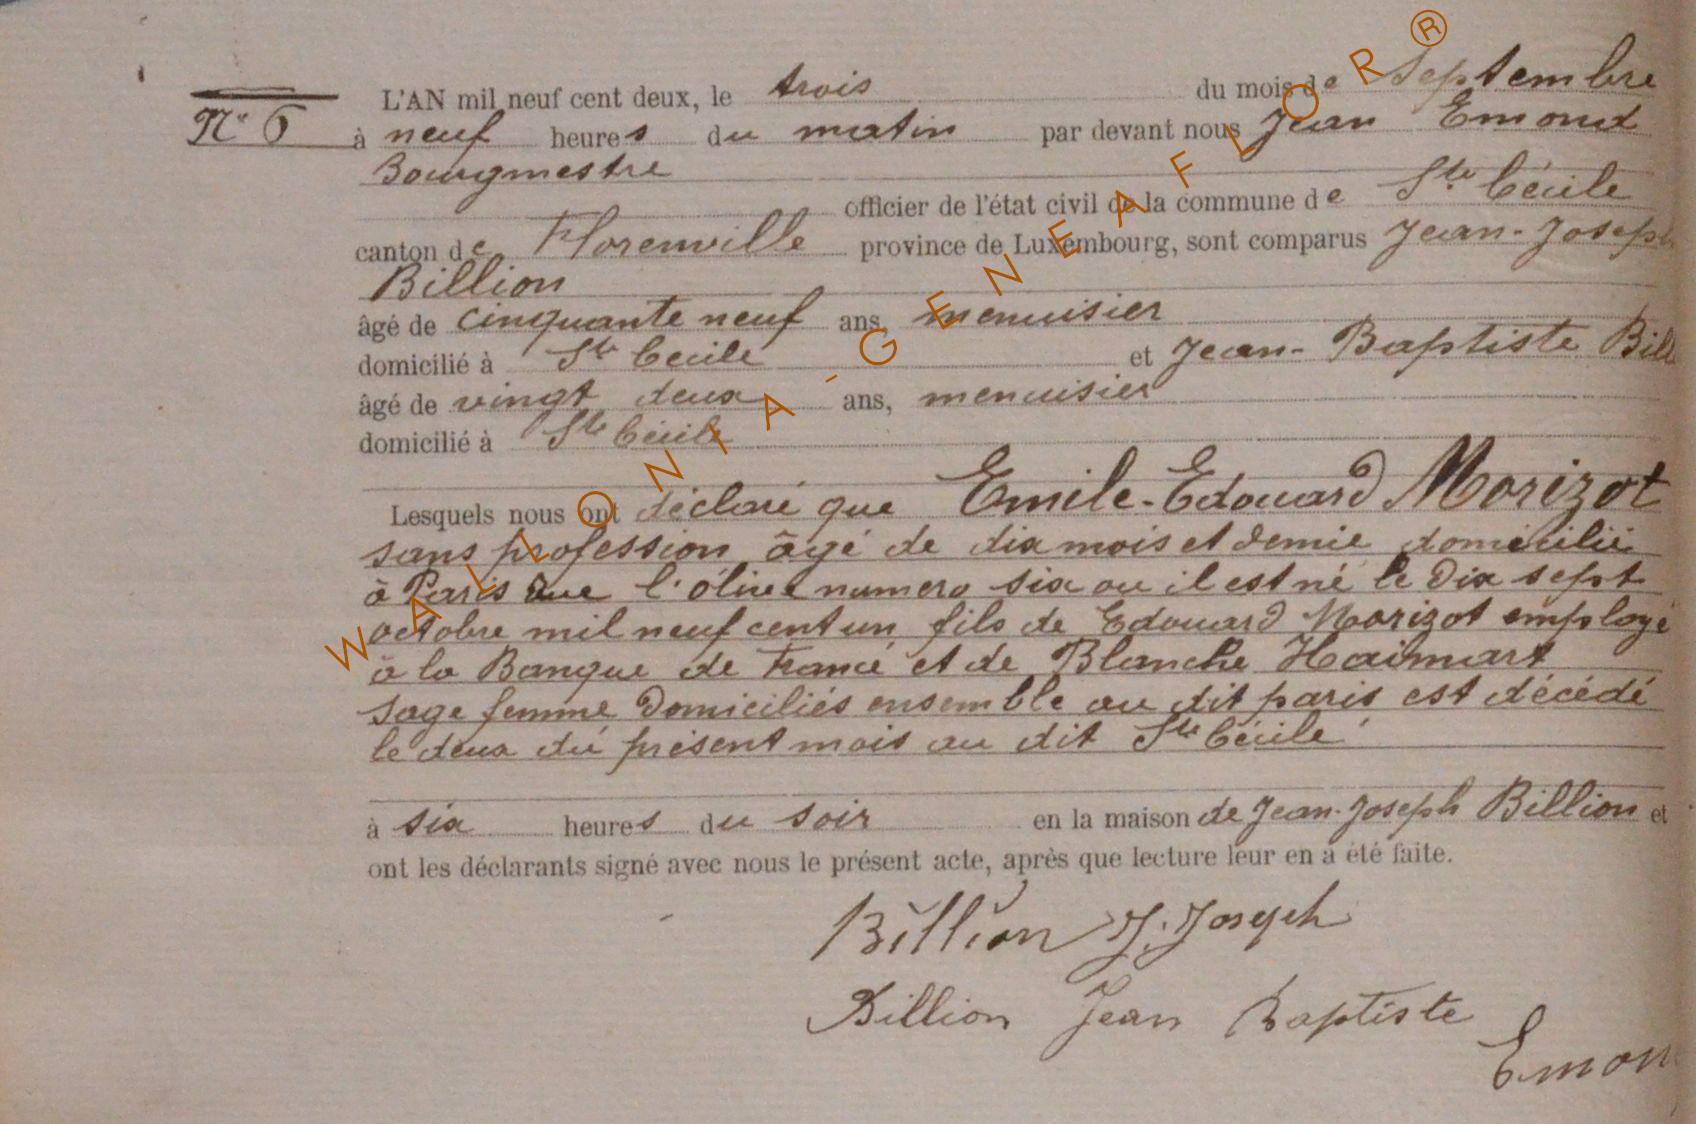 L'AN mil neuf cent deux, le trois du mois de Septembre
N° 6 à neuf heures du matin par devant nous Jean Emond
Bourgmestre
officier de l'état civil de la commune de Ste Cécile
canton de Florenville province de Luxembourg, sont comparus Jean-Joseph
Billion
âgé de cinquante neuf ans, menuisier
domicilié à Ste Cécile et Jean-Baptiste Bill
âgé de vingt deux ans, menuisier
domicilié à Ste Cécile
Lesquels nous ont déclaré que Emile-Edouard Morizot
sans profession âgé de dix mois et demie domicilié
à Paris Rue l'olive numero six ou il est né le dix sept
octobre mil neuf cent un fils de Edouard Morizot employé
à la Banque de France et de Blanche Haimart
sage femme domiciliés ensemble au dit paris est décédé
le deux du présent mois au dit Ste Cécile
à six heures du soir en la maison de Jean-Joseph Billion et
ont les déclarants signé avec nous le présent acte, après que lecture leur en a été faite.
Billion J. Joseph
Billion Jean Baptiste
Emon
WALLONIA-GENEAFLOR®